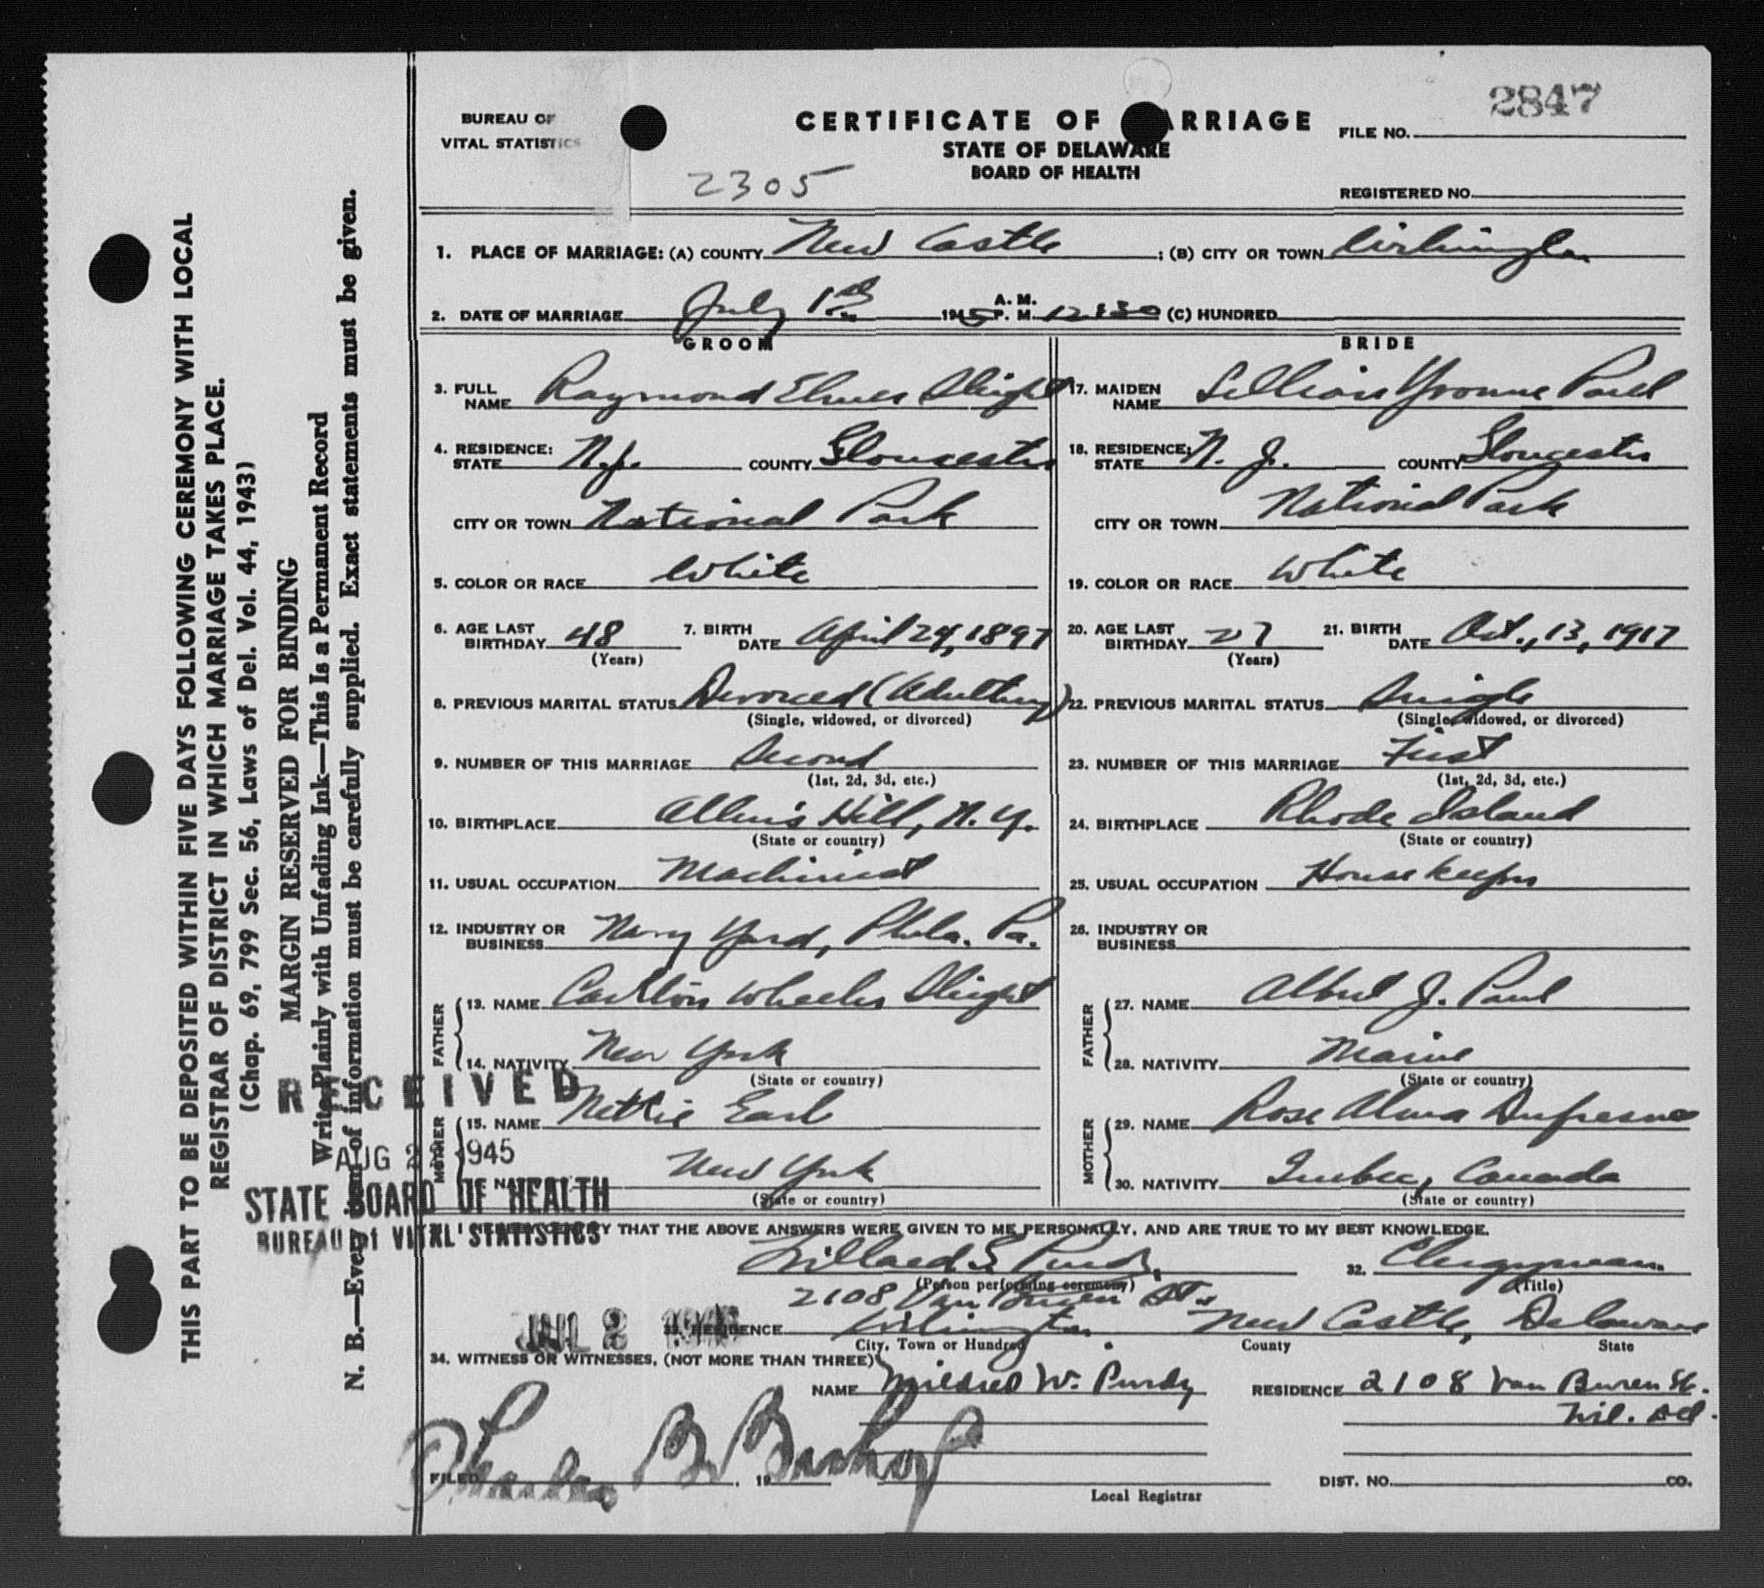 THIS PART TO BE DEPOSITED WITHIN FIVE DAYS FOLLOWING CEREMONY WITH LOCAL
REGISTRAR OF DISTRICT IN WHICH MARRIAGE TAKES PLACE.
(Chap. 69, 799 Sec. 56, Laws of Del. Vol. 44, 1943)
MARGIN RESERVED FOR BINDING
Write Plainly with Unfading Ink—This Is a Permanent Record
N. B.—Every item of information must be carefully supplied. Exact statements must be given.
RECEIVED
AUG 2 1945
STATE BOARD OF HEALTH
BUREAU of VITAL STATISTICS
BUREAU OF
VITAL STATISTICS
CERTIFICATE OF MARRIAGE
STATE OF DELAWARE
BOARD OF HEALTH
2305
2847
FILE NO.
REGISTERED NO.
1. PLACE OF MARRIAGE: (A) COUNTY New Castle ; (B) CITY OR TOWN Wilmington
2. DATE OF MARRIAGE July 1st 1945 A. M. P. M. 12:30 (C) HUNDRED
GROOM BRIDE
3. FULL NAME Raymond Elmer Sleight 17. MAIDEN NAME Lillian Yvonne Paul
4. RESIDENCE: STATE N.J. COUNTY Gloucester 18. RESIDENCE: STATE N. J. COUNTY Gloucester
CITY OR TOWN National Park CITY OR TOWN National Park
5. COLOR OR RACE White 19. COLOR OR RACE White
6. AGE LAST BIRTHDAY 48 (Years) 7. BIRTH DATE April 24, 1897 20. AGE LAST BIRTHDAY 27 (Years) 21. BIRTH DATE Oct., 13, 1917
8. PREVIOUS MARITAL STATUS Divorced (Adultery) 22. PREVIOUS MARITAL STATUS Single
(Single, widowed, or divorced) (Single, widowed, or divorced)
9. NUMBER OF THIS MARRIAGE Second 23. NUMBER OF THIS MARRIAGE First
(1st, 2d, 3d, etc.) (1st, 2d, 3d, etc.)
10. BIRTHPLACE Allen's Hill, N. Y. 24. BIRTHPLACE Rhode Island
(State or country) (State or country)
11. USUAL OCCUPATION Machinist 25. USUAL OCCUPATION Housekeeper
12. INDUSTRY OR BUSINESS Navy Yard, Phila. Pa. 26. INDUSTRY OR BUSINESS
FATHER 13. NAME Carlton Wheeler Sleight FATHER 27. NAME Albert J. Paul
14. NATIVITY New York 28. NATIVITY Maine
(State or country) (State or country)
MOTHER 15. NAME Nettie Earl MOTHER 29. NAME Rose Alma Dufresne
16. NATIVITY New York 30. NATIVITY Quebec, Canada
(State or country) (State or country)
31. I HEREBY CERTIFY THAT THE ABOVE ANSWERS WERE GIVEN TO ME PERSONALLY, AND ARE TRUE TO MY BEST KNOWLEDGE.
Willard S. Purdy 32. Clergyman
(Person performing ceremony) (Title)
2108 Van Buren St.
JUL 2 1945 33. RESIDENCE Wilmington New Castle, Delaware
City, Town or Hundred County State
34. WITNESS OR WITNESSES, (NOT MORE THAN THREE)
NAME Mildred W. Purdy RESIDENCE 2108 Van Buren St.
Wil. Del.
Charles B. Bishop
FILED , 19 DIST. NO. CO.
Local Registrar